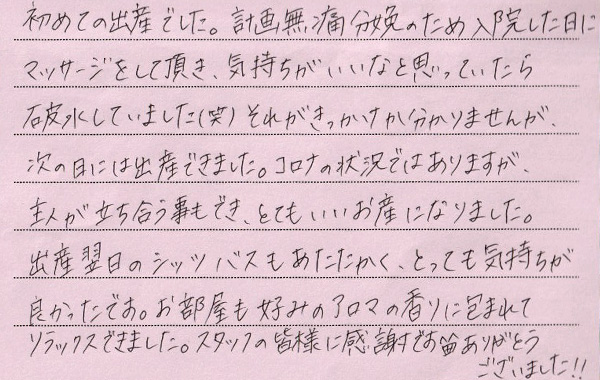 初めての出産でした。計画無痛分娩のため入院した日に
マッサージをして頂き、気持ちがいいなと思っていたら
破水していました(笑)それがきっかけか分かりませんが、
次の日には出産できました。コロナの状況ではありますが、
主人が立ち合う事もでき、とてもいいお産になりました。
出産翌日のシッツバスもあたたかく、とっても気持ちが
良かったです。お部屋も好みのアロマの香りに包まれて
リラックスできました。スタッフの皆様に感謝です ありがとう
ございました!!